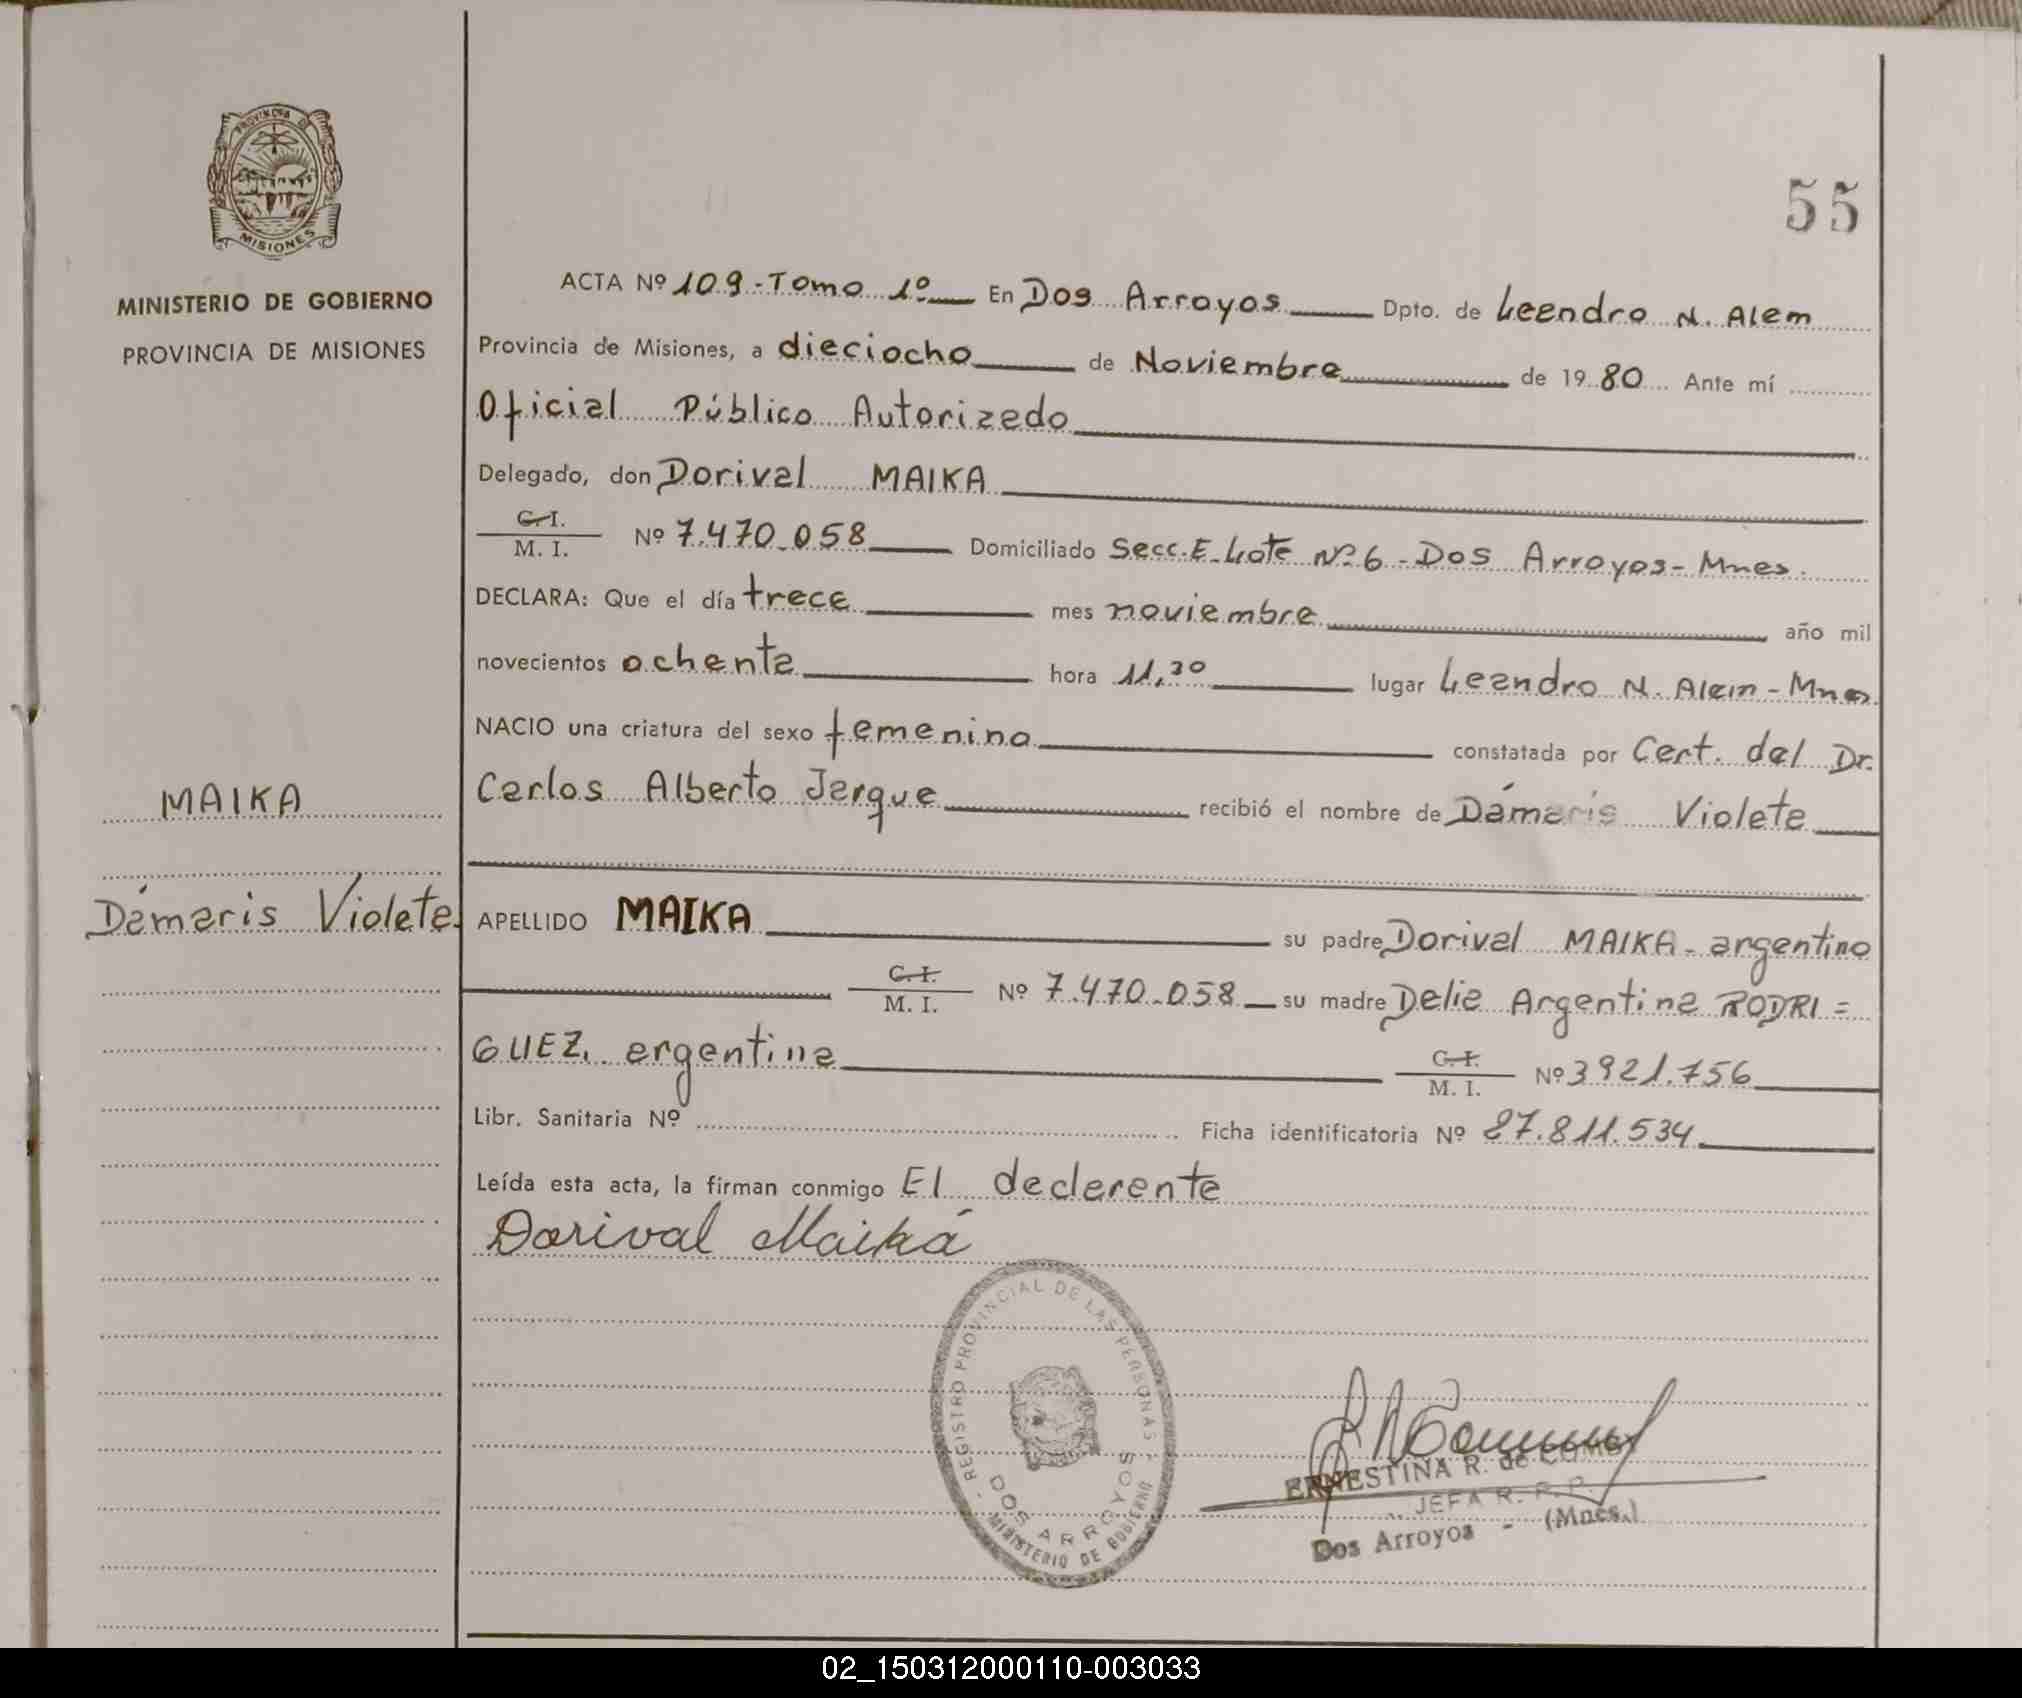 PROVINCIA DE
MISIONES
MINISTERIO DE GOBIERNO
PROVINCIA DE MISIONES
55
ACTA Nº 109 - Tomo 1º En Dos Arroyos Dpto. de Leandro N. Alem
Provincia de Misiones, a dieciocho de Noviembre de 1980 Ante mí
Oficial Público Autorizado
Delegado, don Dorival MAIKA
C. I.
M. I. Nº 7.470.058 Domiciliado Secc. E - Lote Nº 6 - Dos Arroyos - Mnes.
DECLARA: Que el día trece mes noviembre año mil
novecientos ochenta hora 11,30 lugar Leandro N. Alem - Mnes
NACIO una criatura del sexo femenino constatada por Cert. del Dr.
Carlos Alberto Jarque recibió el nombre de Dámaris Violeta
MAIKA
Dámaris Violeta.
APELLIDO MAIKA su padre Dorival MAIKA - argentino
C. I.
M. I. Nº 7.470.058 su madre Delia Argentina RODRI=
GUEZ, argentina C. I.
M. I. Nº 3921.756
Libr. Sanitaria Nº Ficha identificatoria Nº 27.811.534
Leída esta acta, la firman conmigo El declarante
Dorival Maiká
- REGISTRO PROVINCIAL DE LAS PERSONAS -
DOS ARROYOS
MINISTERIO DE GOBIERNO
ERNESTINA R. de
JEFA R. P. P.
Dos Arroyos - (Mnes.)
02_150312000110-003033